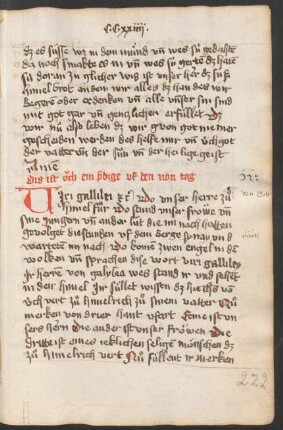 C.C.xxiiij.
dz es süsse wz in dem mund vn̄ wes sü gedahte
da noch smakte es in vn̄ wes sü gerte dz hatte
sü doran zü glicher wis ist vnser herr dz süss
himel brot an dem wir alles dz han des wir
begere oder erdenken vn̄ alle vnser sin sind
mit got gar vn̄ genczlicher erfüllet Dz
wir nü also leben dz wir võn got niemer
gescheiden werden des helfe mir vn̄ üch got
der vatter vn̄ der sün vn̄ der heilige geist
Amen
Dis ist öch ein bredige vf den non tag
Viri gallilei &c Do vnser herre zü
himel für Do stund vnser fröwe vn̄
sine jungern vn̄ ander lüt die im nach hatten
gevolget die stunden vf dem berge syon vn̄
warteten im nach Do kome zwen engel in dē
wolken vn̄ sprachen dise wort viri gallilei
Ir herren von galylea wes stand ir vnd sehent
in den himel Jr süllent wissen dz ihesus von
üch vert zü himelrich zü sinem vatter Nü
merken von drier hant vfart Eine ist vn
sers herrn Die ander ist vnser fröwen Die
dritte ist eines ieklichen seligē mönschen dz
zü himelrich vert Nü süllent ir merken
222